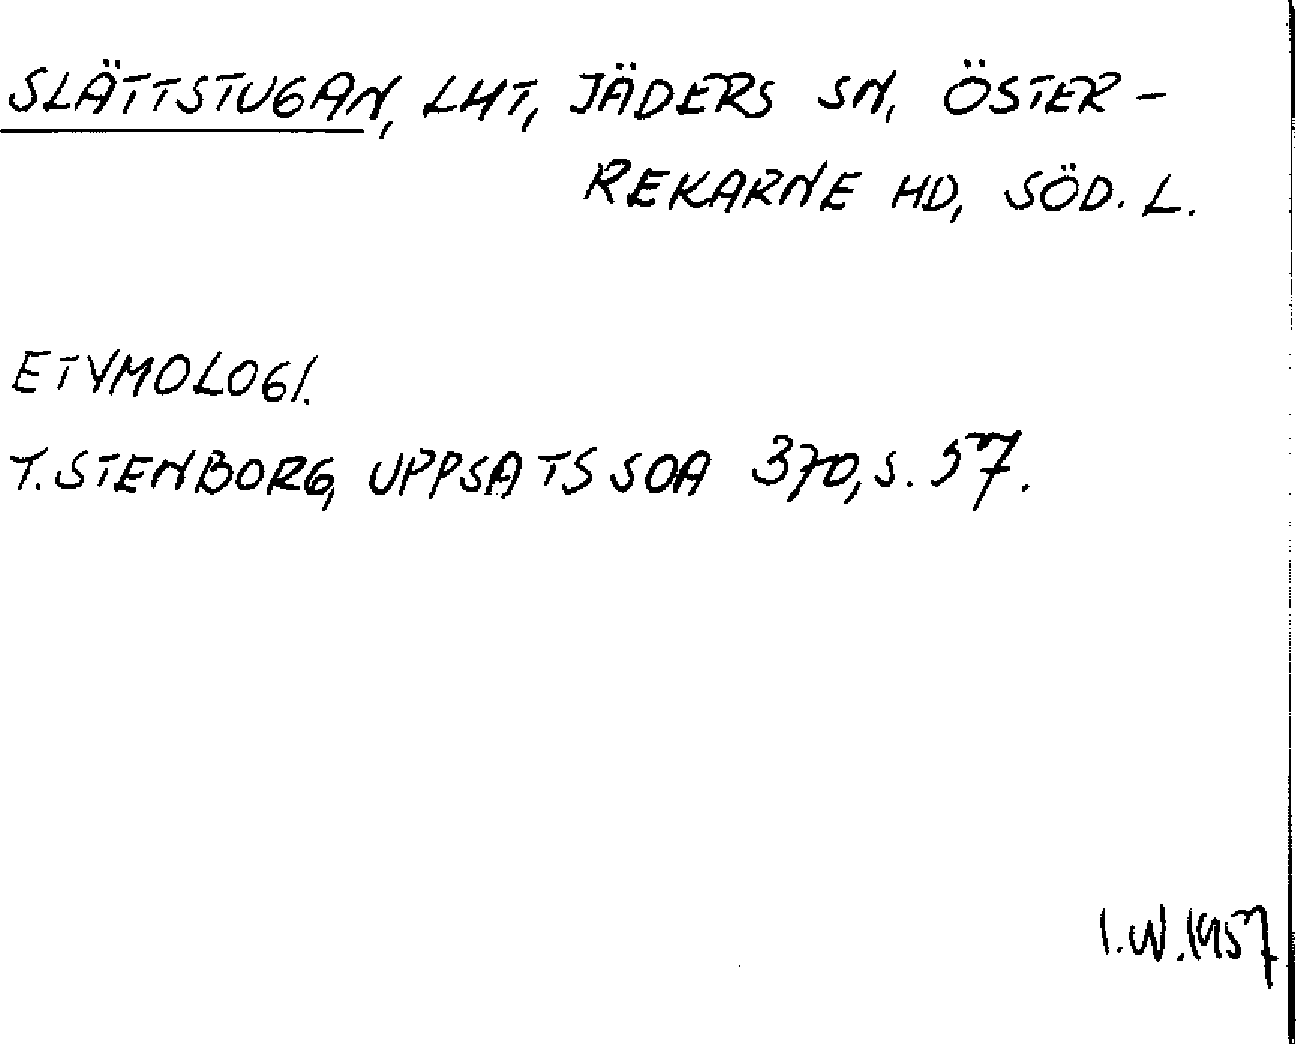 SLÄTTSTUGAN, LHT, JÄDERS SN, ÖSTER-
REKARNE HD, SÖD. L.
ETYMOLOGI.
T. STENBORG, UPPSATS SOA 370, S. 57.
I.W. 1957